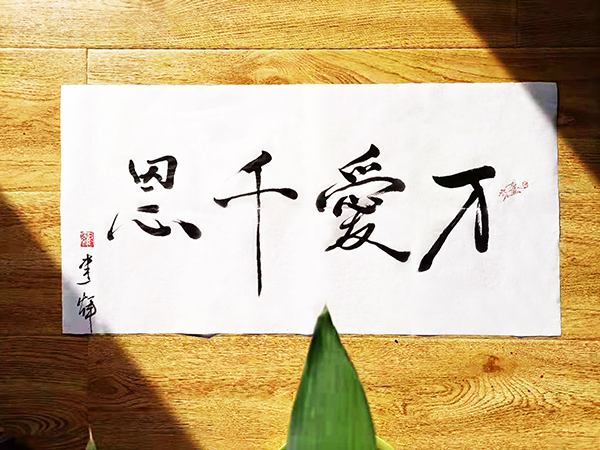 万愛千恩